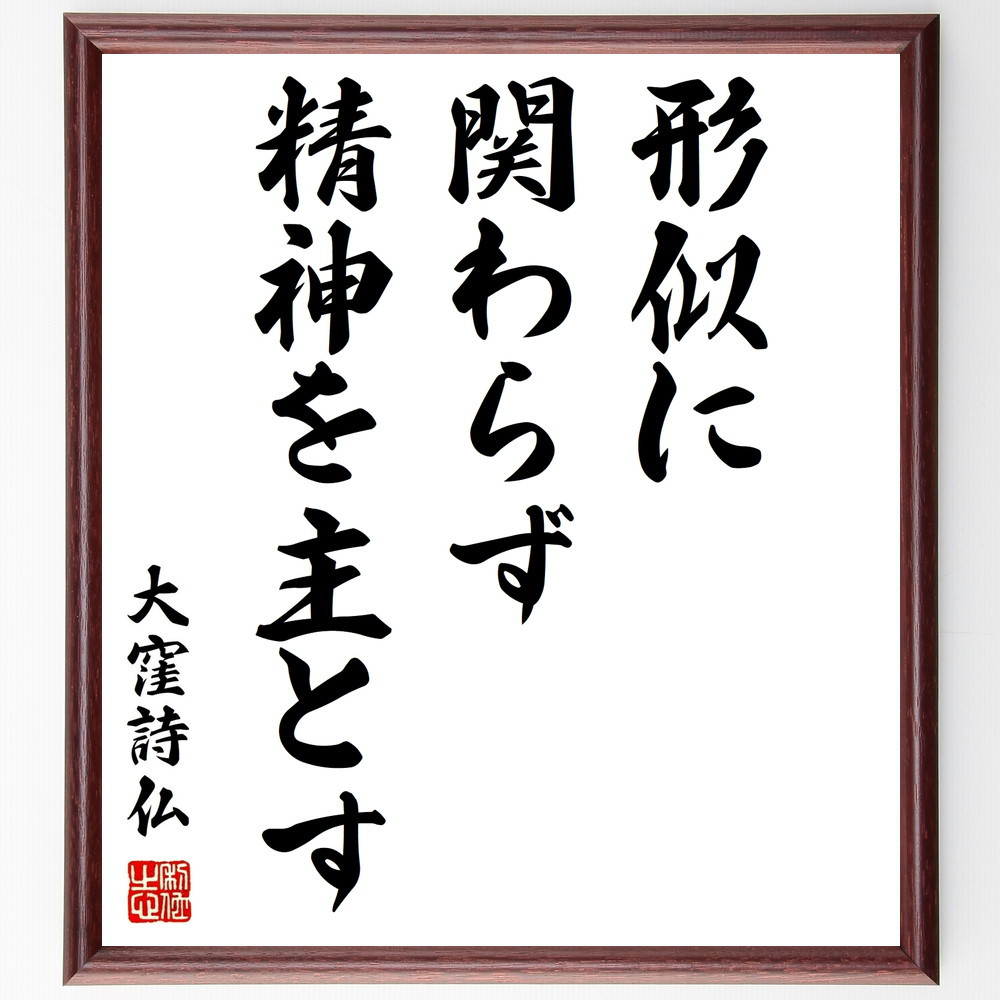 形似に
関わらず
精神を主とす
大窪詩仏